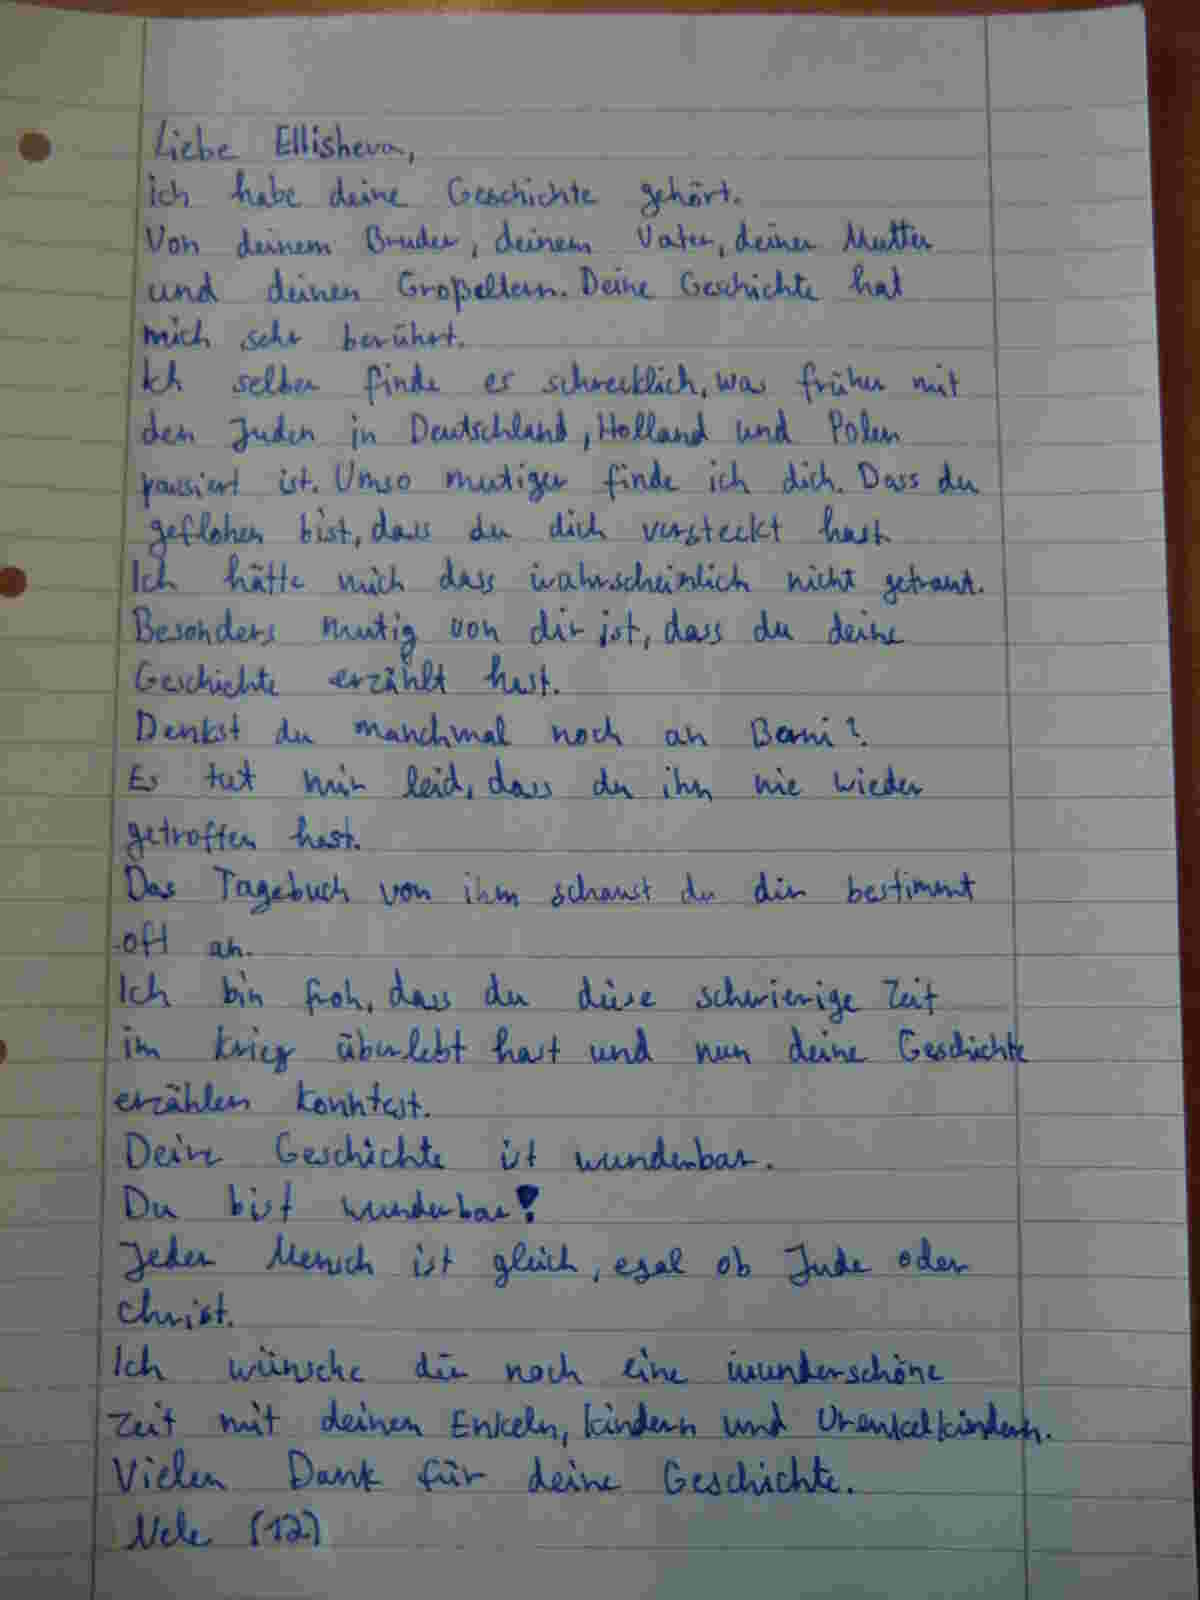 Liebe Ellisheva,
ich habe deine Geschichte gehört.
Von deinem Bruder, deinem Vater, deiner Mutter
und deinen Großeltern. Deine Geschichte hat
mich sehr berührt.
Ich selber finde es schrecklich, was früher mit
den Juden in Deutschland, Holland und Polen
passiert ist. Umso mutiger finde ich dich. Dass du
geflohen bist, dass du dich versteckt hast.
Ich hätte mich dass wahrscheinlich nicht getraut.
Besonders mutig von dir ist, dass du deine
Geschichte erzählt hast.
Denkst du manchmal noch an Berni?
Es tut mir leid, dass du ihn nie wieder
getroffen hast.
Das Tagebuch von ihm schaust du dir bestimmt
oft an.
Ich bin froh, dass du diese schwierige Zeit
im Krieg überlebt hast und nun deine Geschichte
erzählen konntest.
Deine Geschichte ist wunderbar.
Du bist wunderbar!
Jeder Mensch ist gleich, egal ob Jude oder
Christ.
Ich wünsche dir noch eine wunderschöne
Zeit mit deinen Enkeln, Kindern und Urenkelkindern.
Vielen Dank für deine Geschichte.
Nele (12)